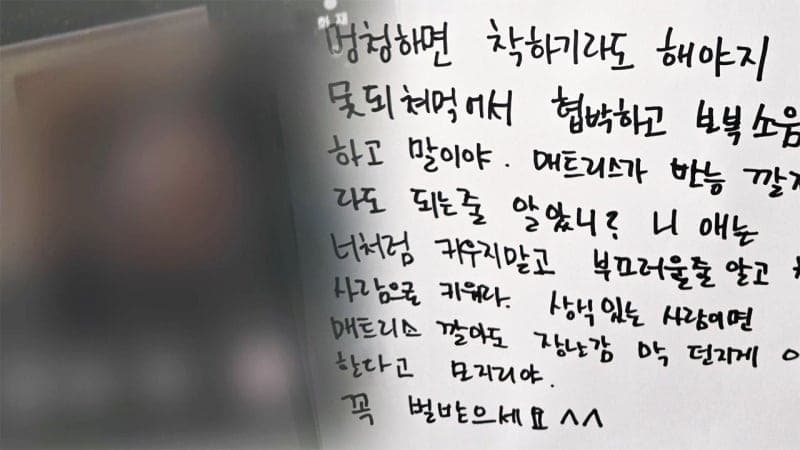 멍청하면 착하기라도 해야지
못되 쳐먹어서 협박하고 보복소음
하고 말이야. 매트리스가 만능
라도 되는줄 알았니? 니 애는
너처럼 키우지말고 부끄러울줄 알고
사람으로 키워라. 상식있는 사람이면
매트리스 깔아도 장난감 막 던지게
한다고 모지리야.
꼭 벌받으세요 ^^